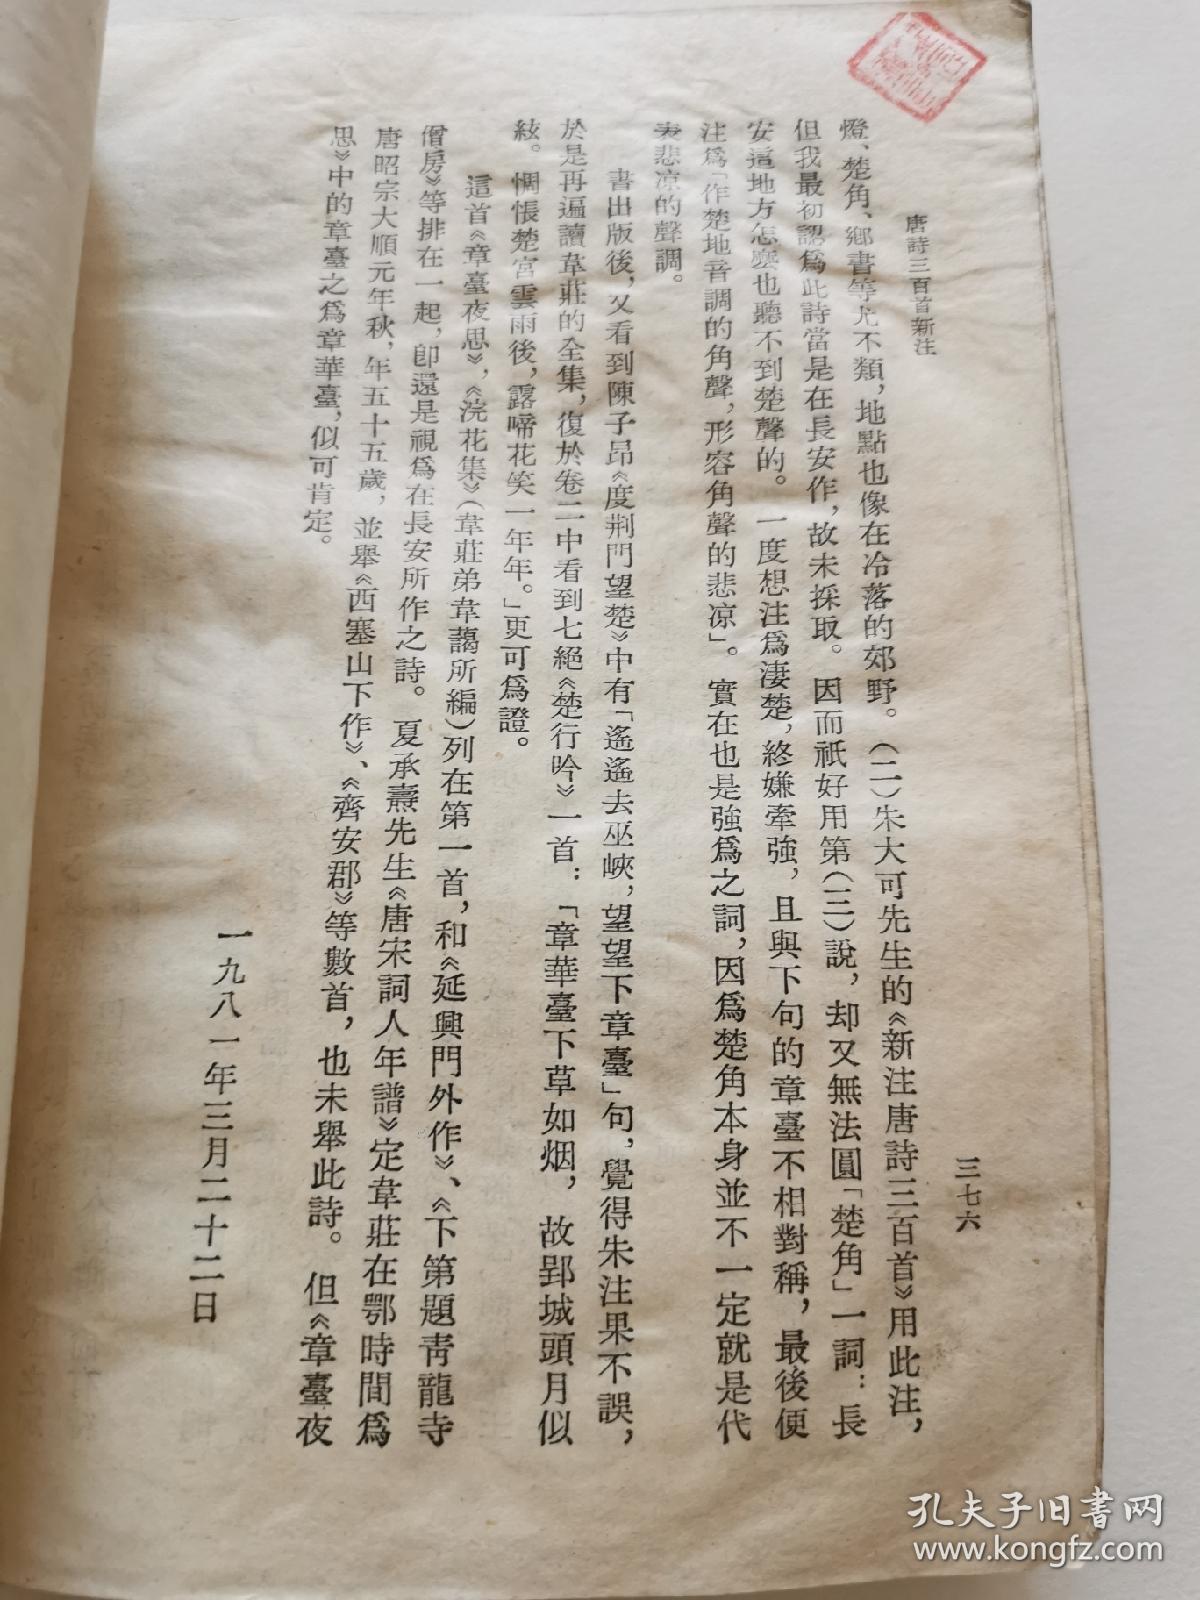 唐詩三百首新注
三七六
燈、楚角、鄉書等尤不類，地點也像在冷落的郊野。（二）朱大可先生的《新注唐詩三百首》用此注，
但我最初認爲此詩當是在長安作，故未採取。因而祇好用第（三）說，却又無法圓「楚角」一詞：長
安這地方怎麽也聽不到楚聲的。一度想注爲淒楚，終嫌牽強，且與下句的章臺不相對稱，最後便
注爲「作楚地音調的角聲，形容角聲的悲凉」。實在也是強爲之詞，因爲楚角本身並不一定就是代
表悲凉的聲調。
書出版後，又看到陳子昂《度荆門望楚》中有「遙遙去巫峽，望望下章臺」句，覺得朱注果不誤，
於是再遍讀韋莊的全集，復於卷二中看到七絕《楚行吟》一首：「章華臺下草如烟，故郢城頭月似
絃。惆悵楚宮雲雨後，露啼花笑一年年。」更可爲證。
這首《章臺夜思》，《浣花集》（韋莊弟韋藹所編）列在第一首，和《延興門外作》、《下第題青龍寺
僧房》等排在一起，卽還是視爲在長安所作之詩。夏承燾先生《唐宋詞人年譜》定韋莊在鄂時間爲
唐昭宗大順元年秋，年五十五歲，並舉《西塞山下作》、《齊安郡》等數首，也未舉此詩。但《章臺夜
思》中的章臺之爲章華臺，似可肯定。
一九八一年三月二十二日
孔夫子旧书网
www.kongfz.com